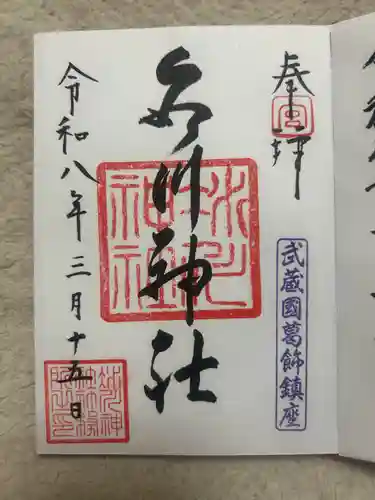 奉拝
宮
武蔵國葛飾鎮座
氷川神社
氷川
神社
令和八年三月十五日